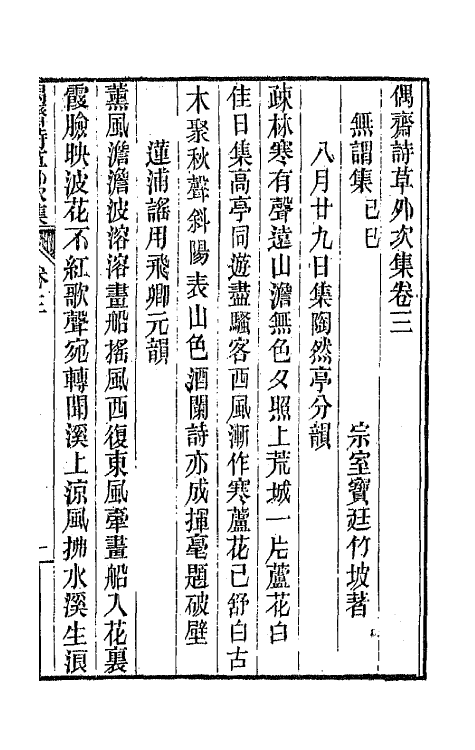 偶齋詩草外次集卷三
無謂集己巳
宗室寶廷竹坡著
八月廿九日集陶然亭分韻
疎林寒有聲遠山澹無色夕照上荒城一片蘆花白
佳日集高亭同遊盡騷客西風漸作寒蘆花已舒白古
木聚秋聲斜陽表山色酒闌詩亦成揮毫題破壁
蓮浦謠用飛卿元韻
薰風澹澹波溶溶畫船搖風西復東風牽畫船入花裏
霞臉映波花不紅歌聲宛轉聞溪上涼風拂水溪生浪
偶齋詩草外次集 卷三 一